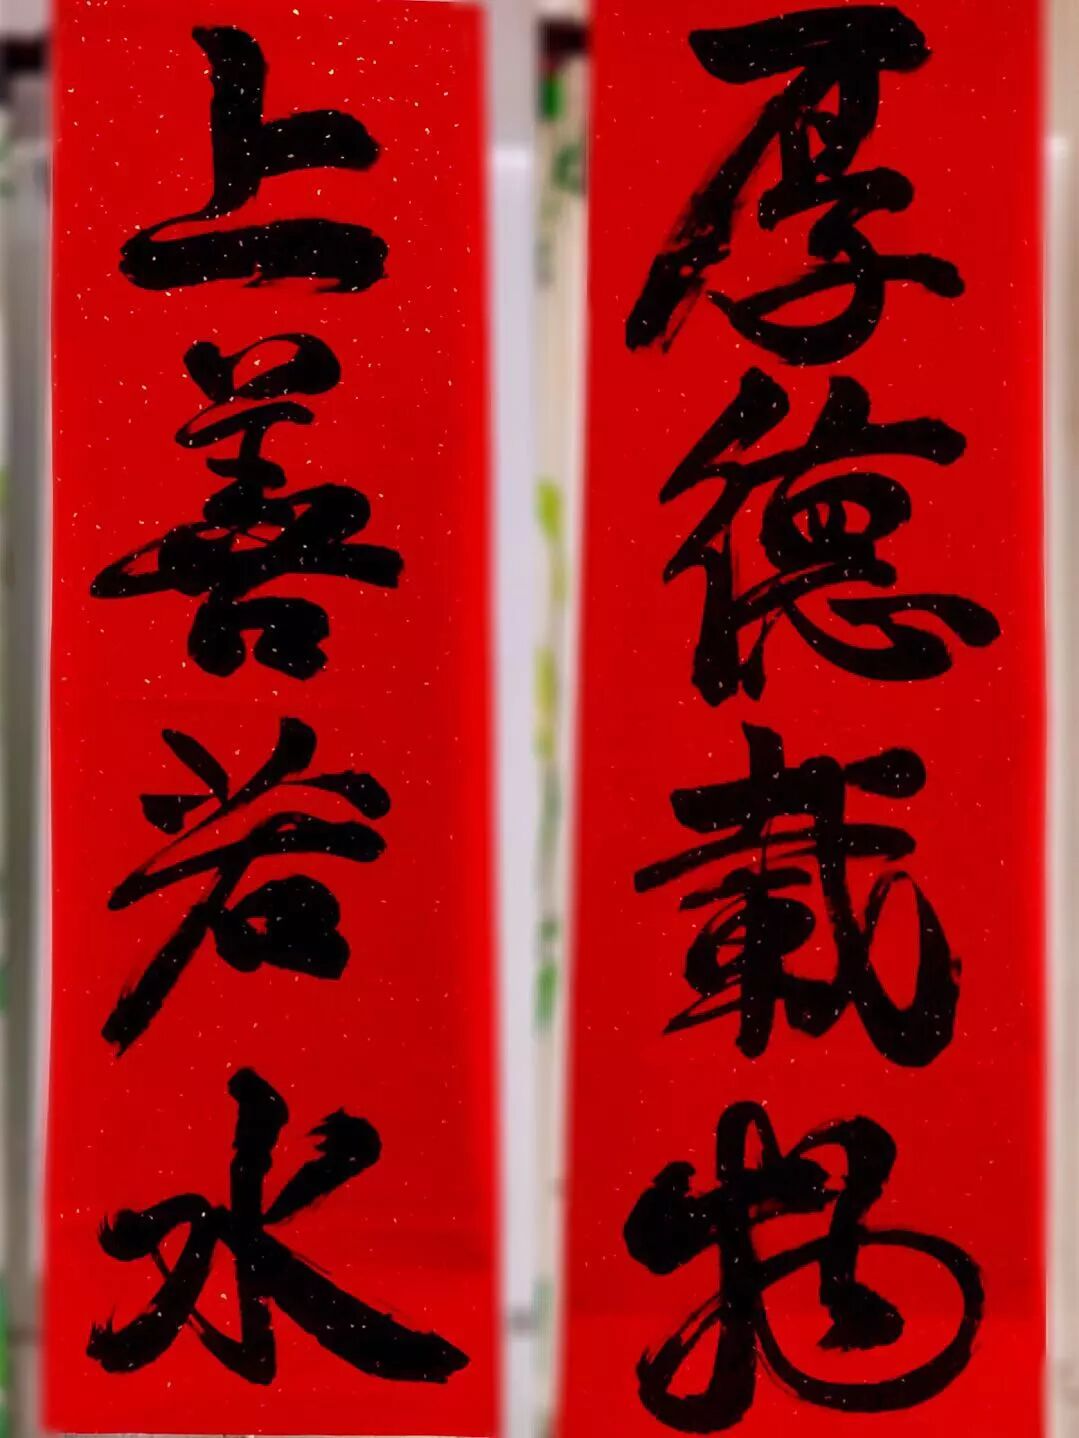 厚德载物
上善若水